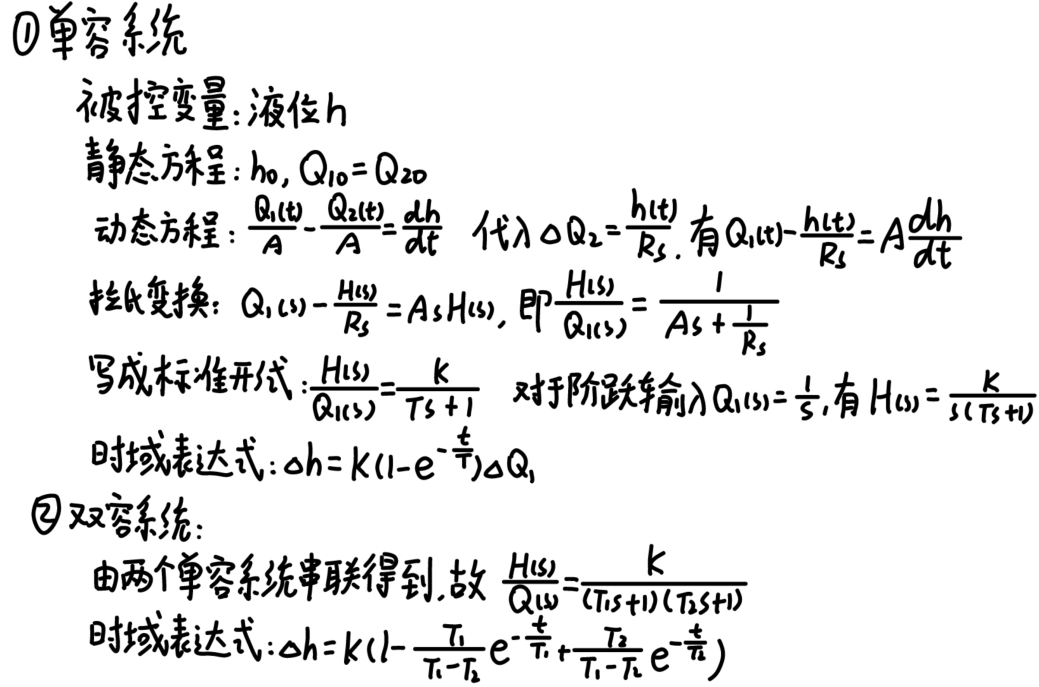 ①单容系统
被控变量:液位h
静态方程:h₀, Q₁₀=Q₂₀
动态方程: Q₁(t)/A - Q₂(t)/A = dh/dt 代入△Q₂ = h(t)/Rₛ. 有Q₁(t) - h(t)/Rₛ = A dh/dt
拉氏变换: Q₁(s) - H(s)/Rₛ = AsH(s), 即 H(s)/Q₁(s) = 1/(As + 1/Rₛ)
写成标准形式: H(s)/Q₁(s) = K/(Ts+1) 对于阶跃输入Q₁(s) = 1/s, 有 H(s) = K/(s(Ts+1))
时域表达式:△h = K(1-e^(-t/T))△Q₁
②双容系统:
由两个单容系统串联得到,故 H(s)/Q(s) = K/((T₁s+1)(T₂s+1))
时域表达式:△h = K(1 - T₁/(T₁-T₂) e^(-t/T₁) + T₂/(T₁-T₂) e^(-t/T₂))